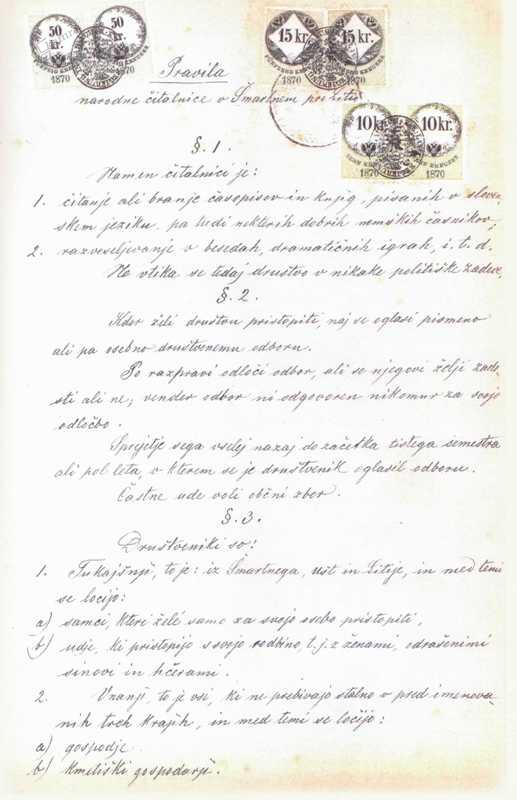 50 kr.
50 kr.
FÜNFZIG KREUZER
1870
1870
15 kr.
15 kr.
FÜNFZEHN KREUZER
1870
1870
10 kr.
10 kr.
ZEHN KREUZER
ZEHN KREUZER
1870
1870
Pravila
narodne čitalnice v Šmartnem pri Litiji
§. 1.
Namen čitalnici je:
1. čitanje ali branje časopisov in knjig, pisanih v sloven-
skem jeziku, pa tudi nekterih dobrih nemških časnikov;
2. razveseljevanje v besedah, dramatičnih igrah, i. t. d.
Ne vtika se tedaj društvo v nikake politiške zadeve.
§. 2.
Kdor želi društvu pristopiti, naj se oglasi pismeno
ali pa osebno društvenemu odboru.
Po razpravi odloči odbor, ali se njegovi želji zado-
sti ali ne; vender odbor ni odgovoren nikomur za svojo
odločbo.
Sprejetje sega vselej nazaj do začetka tistega semestra
ali pol leta, v kterem se je društvenik oglasil odboru.
Častne ude voli občni zbor.
§. 3.
Društveniki so:
1. Tukajšnji, to je: iz Šmartnega, Ust in Litije, in med temi
se ločijo:
a) samci, kteri želé samo za svojo osebo pristopiti,
b) udje, ki pristopijo s svojo rodbino, t. j. z ženami, odrašenimi
sinovi in hčerami.
2. Vnanji, to je vsi, ki ne prebivajo stalno v pred imenova-
nih treh krajih, in med temi se ločijo:
a) gospodje
b) kmetiški gospodarji.